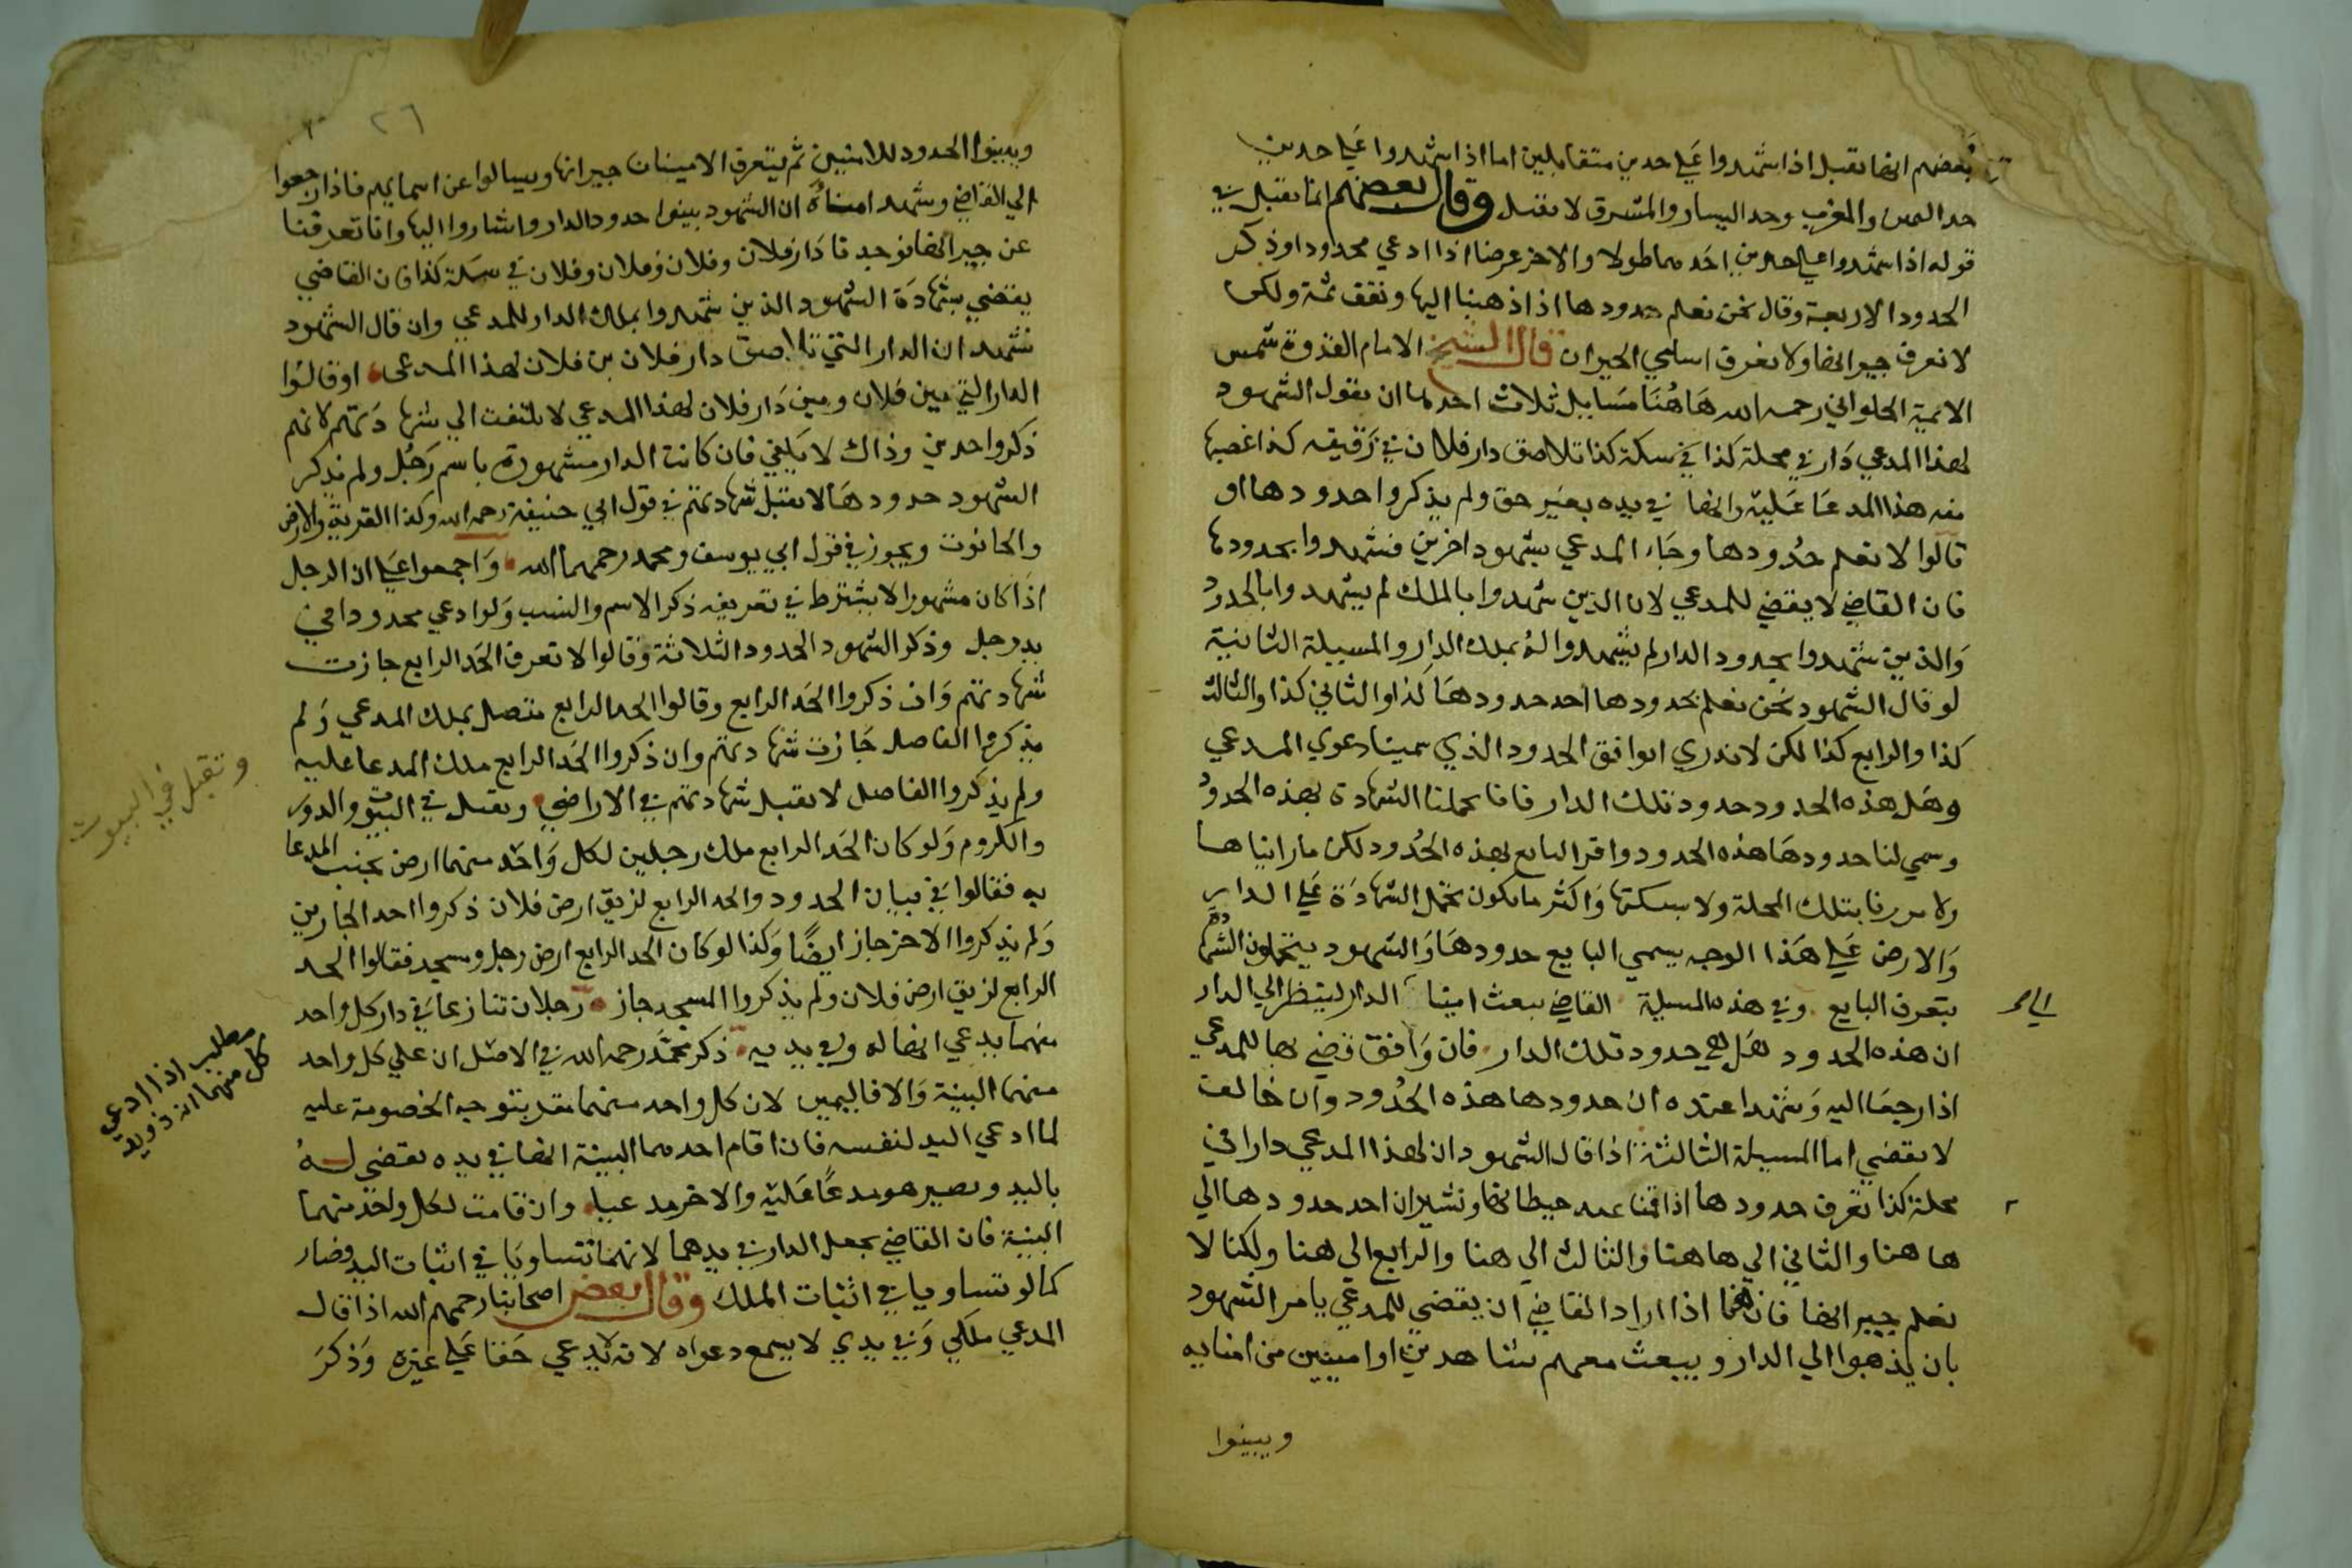 بعضهم انها تقبل اذا شهدوا علي حدين متقابلين اما اذا شهدوا علي حدين
حد اليمين والمغرب وحد اليسار والمشرق لا تقبل وقال بعضهم انما تقبل في
قوله اذا شهدوا علي حدين احدهما طولا والاخر عرضا اذا ادعي محدودا وذكر
الحدود الاربعة وقال نحن نعلم حدودها اذا ذهبنا اليها ونقف ثمة ولكن
لا نعرف جيرانها ولا نعرف اسامي الجيران قال الشيخ الامام القدوة شمس
الايمة الحلواني رحمه الله هاهنا مسايل ثلاث احدها ان يقول الشهود
لهذا المدعي دار في محلة كذا في سكة كذا تلاصق دار فلان في زقيقه كذا غصبها
منه هذا المدعا عليه وانها في يده بغير حق ولم يذكروا حدودها او
قالوا لا نعلم حدودها وجاء المدعي بشهود اخرين فشهدوا بحدودها
فان القاضي لا يقضي للمدعي لان الذين شهدوا بالملك لم يشهدوا بالحدود
والذين شهدوا بحدود الدار لم يشهدوا له بملك الدار والمسيلة الثانية
لو قال الشهود نحن نعلم بحدودها احد حدودها كذا والثاني كذا والثالث
كذا والرابع كذا لكن لا ندري اتوافق الحدود الذي سمينا دعوي المدعي
وهل هذه الحدود حدود تلك الدار فانا تحملنا الشهادة بهذه الحدود
وسمي لنا حدودها هذه الحدود واقر البايع بهذه الحدود لكن ما رايناها
ولا مررنا بتلك المحلة ولا بسكتها واكثر ما يكون تحمل الشهادة علي الدار
والارض علي هذا الوجه يسمي البايع حدودها والشهود يتحملون الشهادة
بتعرف البايع وفي هذه المسيلة القاضي يبعث امينا الدار لينظر الي الدار
الي
ان هذه الحدود هل هي حدود تلك الدار فان وافق قضي بها للمدعي
اذا رجعا اليه وشهدا عنده ان حدودها هذه الحدود وان خالف
لا يقضي اما المسيلة الثالثة اذا قال الشهود ان لهذا المدعي دارا في
محلة كذا نعرف حدودها اذا قمنا عند حيطانها ونشير ان احد حدودها الي
هاهنا والثاني الي هاهنا والثالث الي هنا والرابع الي هنا ولكنا لا
نعلم جيرانها فان اذا اراد القاضي ان يقضي للمدعي يامر الشهود
بان يذهبوا الي الدار ويبعث معهم شاهدين او امينين من امنايه
ويبينوا
٢٦
ويبينوا الحدود للامنين ثم يتعرف الامينان جيرانها ويسالوا عن اسمايهم فاذا رجعوا
الي القاضي وشهد امناؤه ان الشهود بينوا حدود الدار واشاروا اليها وانا تعرفنا
عن جيرانها فوجدنا دار فلان وفلان وفلان وفلان في سكة كذا فان القاضي
يقضي بشهادة الشهود الذين شهدوا بملك الدار للمدعي وان قال الشهود
نشهد ان الدار التي تلاصق دار فلان بن فلان لهذا المدعي او قالوا
الدار التي بين فلان وبين دار فلان لهذا المدعي لا يلتفت الي شهادتهم لانهم
ذكروا حدين وذاك لا يكفي فان كانت الدار مشهورة باسم رجل ولم يذكر
الشهود حدودها لا تقبل شهادتهم في قول ابي حنيفة رحمه الله وكذا القرية والارض
والحانوت ويجوز في قول ابي يوسف ومحمد رحمهما الله واجمعوا علي ان الرجل
اذا كان مشهورا لا يشترط في تعريفه ذكر الاسم والنسب ولو ادعي محدودا في
يد رجل وذكر الشهود الحدود الثلاثة وقالوا لا نعرف الحد الرابع جازت
شهادتهم وان ذكروا الحد الرابع وقالوا الحد الرابع متصل بملك المدعي ولم
يذكروا الفاصل جازت شهادتهم وان ذكروا الحد الرابع ملك المدعا عليه
ولم يذكروا الفاصل لا تقبل شهادتهم في الاراضي وتقبل في البيوت والدور
وتقبل في البيوت
والكروم ولو كان الحد الرابع ملك رجلين لكل واحد منهما ارض بجنب المدعا
به فقالوا في بيان الحدود والحد الرابع لزيق ارض فلان ذكروا احد الجارين
ولم يذكروا الاخر جاز ايضا وكذا لو كان الحد الرابع ارض رجل ومسجد فقالوا الحد
الرابع لزيق ارض فلان ولم يذكروا المسجد جاز رجلان تنازعا في دار كل واحد
منهما يدعي انها له وفي يديه ذكر محمد رحمه الله في الاصل ان علي كل واحد
مطلب اذا ادعي
كل منهما انه ذو يد
منهما البينة والا فاليمين لان كل واحد منهما مقر بتوجه الخصومة عليه
لما ادعي اليد لنفسه فان اقام احدهما البينة انها في يده يقضي له
باليد ويصير هو مدعا عليه والاخر مدعيا وان قامت لكل واحد منهما
البينة فان القاضي يجعل الدار في يدهما لانهما تساويا في اثبات اليد فصار
كما لو تساويا في اثبات الملك وقال بعض اصحابنا رحمهم الله اذا قال
المدعي ملكي وفي يدي لا يسمع دعواه لانه لا يدعي حقا علي غيره وذكر